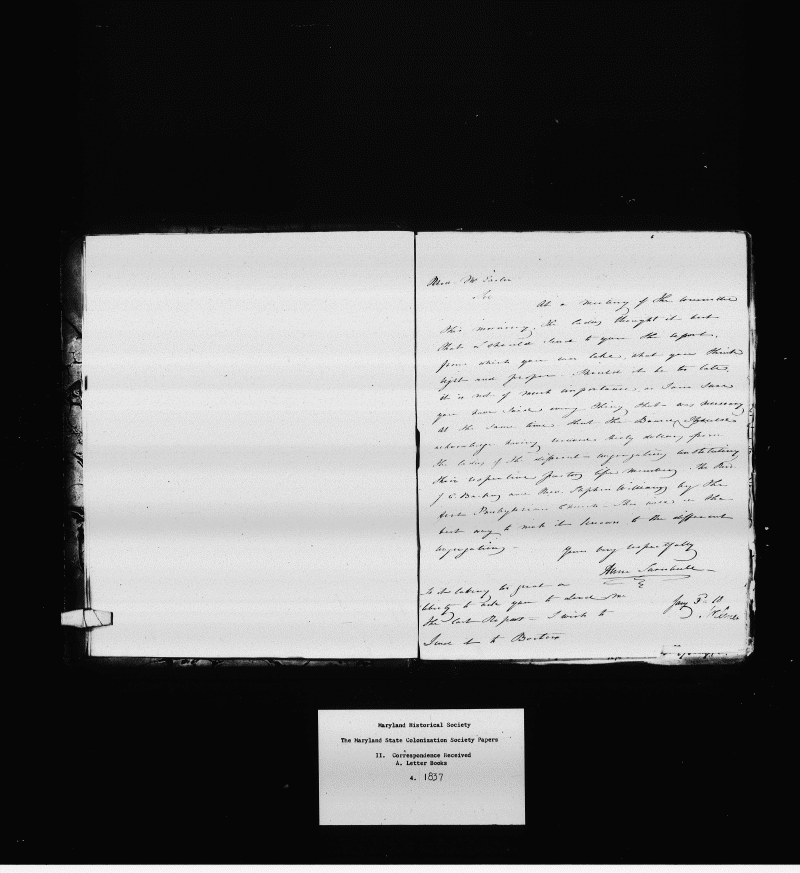 Sir
At a meeting of the
this morning, the ladies thought it best
that I should send to you the report,
from which you can take what you think
right and proper. Should it be too late,
it is not of much importance, as I am sure
you have said every thing that was necessary
at the same time that the Board
acknowledge having received thirty dollars from
the ladies of the different congregations constituting
their respective pastors life members. the Rev.
J. C. Backus and Rev. Stephen Williams by the
Presbyterian Church. This is the
best way to make it known to the different
congregations -
Yours very respectfully
Anne
is it taking too great a
liberty to ask you to send me
the last Report - I wish to
Send it to Boston
Maryland Historical Society
The Maryland State Colonization Society Papers
II. Correspondence Received
A. Letter Books
4. 1837